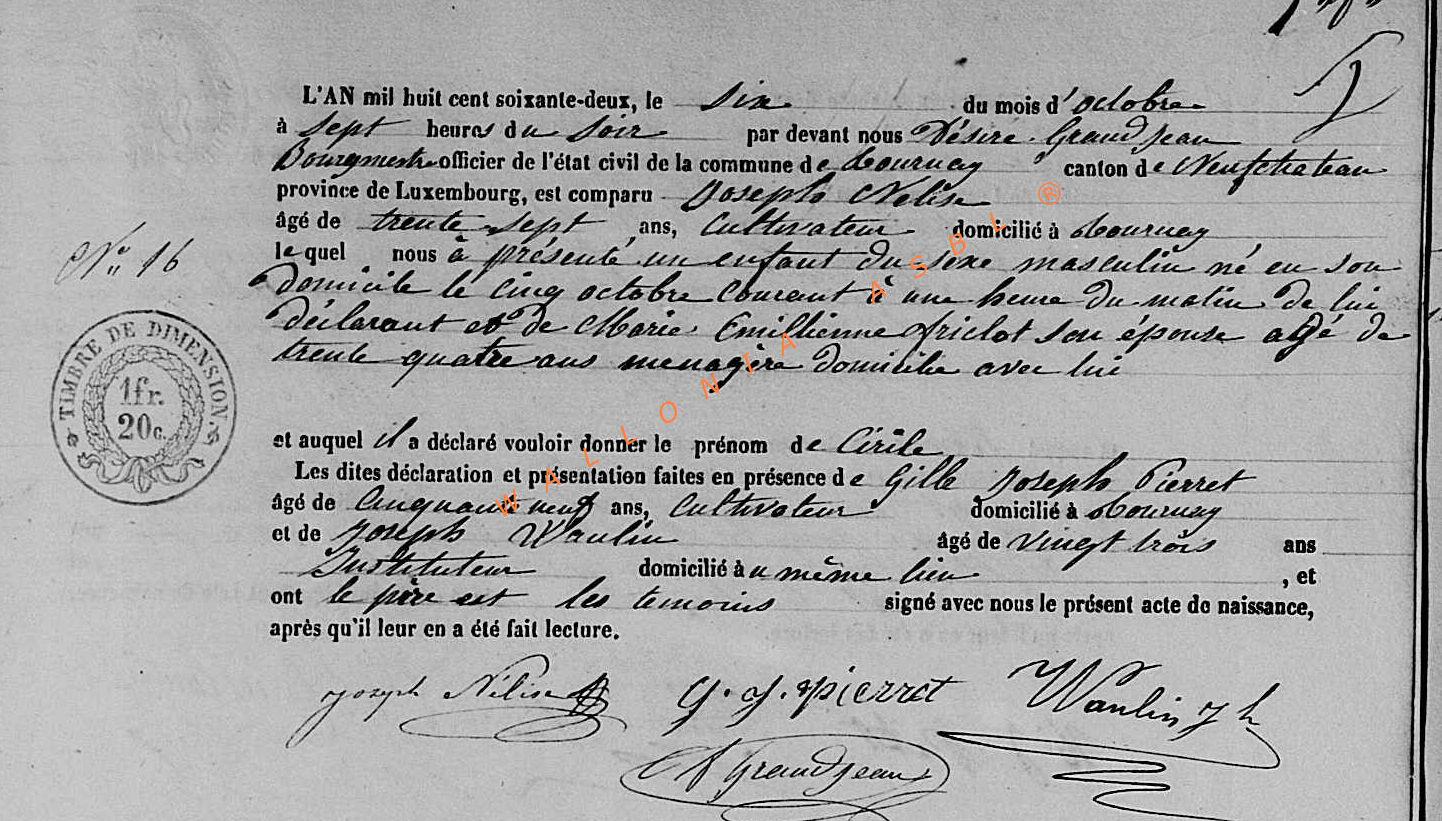 L'AN mil huit cent soixante-deux, le six du mois d'octobre
à sept heures du soir par devant nous Désiré Grandjean
Bourgmestre officier de l'état civil de la commune de Tournay canton de Neufchateau
province de Luxembourg, est comparu Joseph Nelise
âgé de trente sept ans, Cultivateur domicilié à Tournay
le quel nous à présenté un enfant du sexe masculin né en son
N° 16
domicile le cinq octobre courant à une heure du matin de lui
déclarant et de Marie Emillienne son épouse agé de
trente quatre ans menagère domicilié avec lui
TIMBRE DE DIMENSION
1fr.
20c.
et auquel il a déclaré vouloir donner le prénom de Cirile
Les dites déclaration et présentation faites en présence de Gille Joseph Pierret
âgé de Cinquante neuf ans, Cultivateur domicilié à Tournay
et de Joseph Waulin âgé de vingt trois ans
Instituteur domicilié à u même lieu , et
ont le père est les temoins signé avec nous le présent acte de naissance,
après qu'il leur en a été fait lecture.
Joseph Nélise G. J. Pierret Waulin Jh
Grandjean
WALLONIA ASBL ®